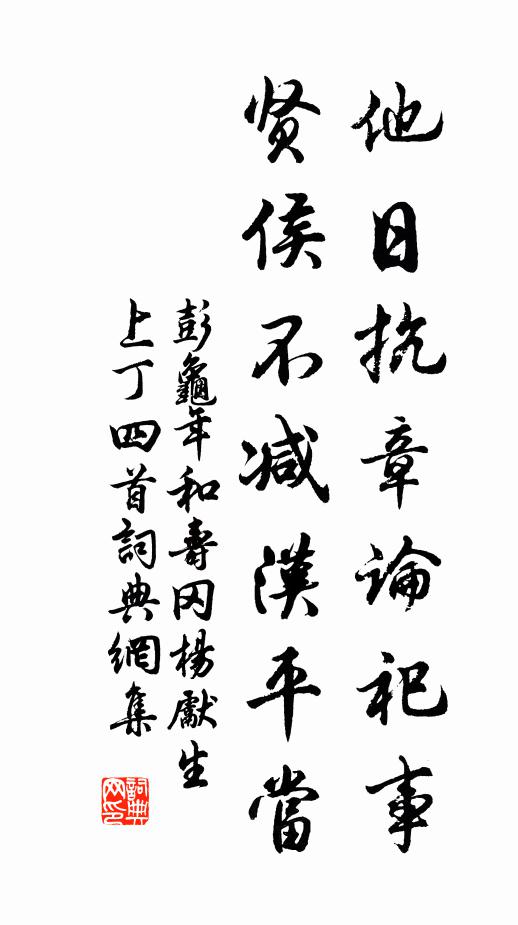 他日抗章論祀事
贤侯不减漢平當
彭龜年和壽冈楊獻生
上丁四首詞典網集
詞典网印